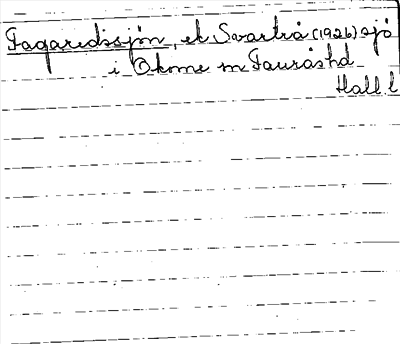 Fagaredssjön, ek Svartrå (1926) sjö
i Okome m Fauråshd
Hall. l